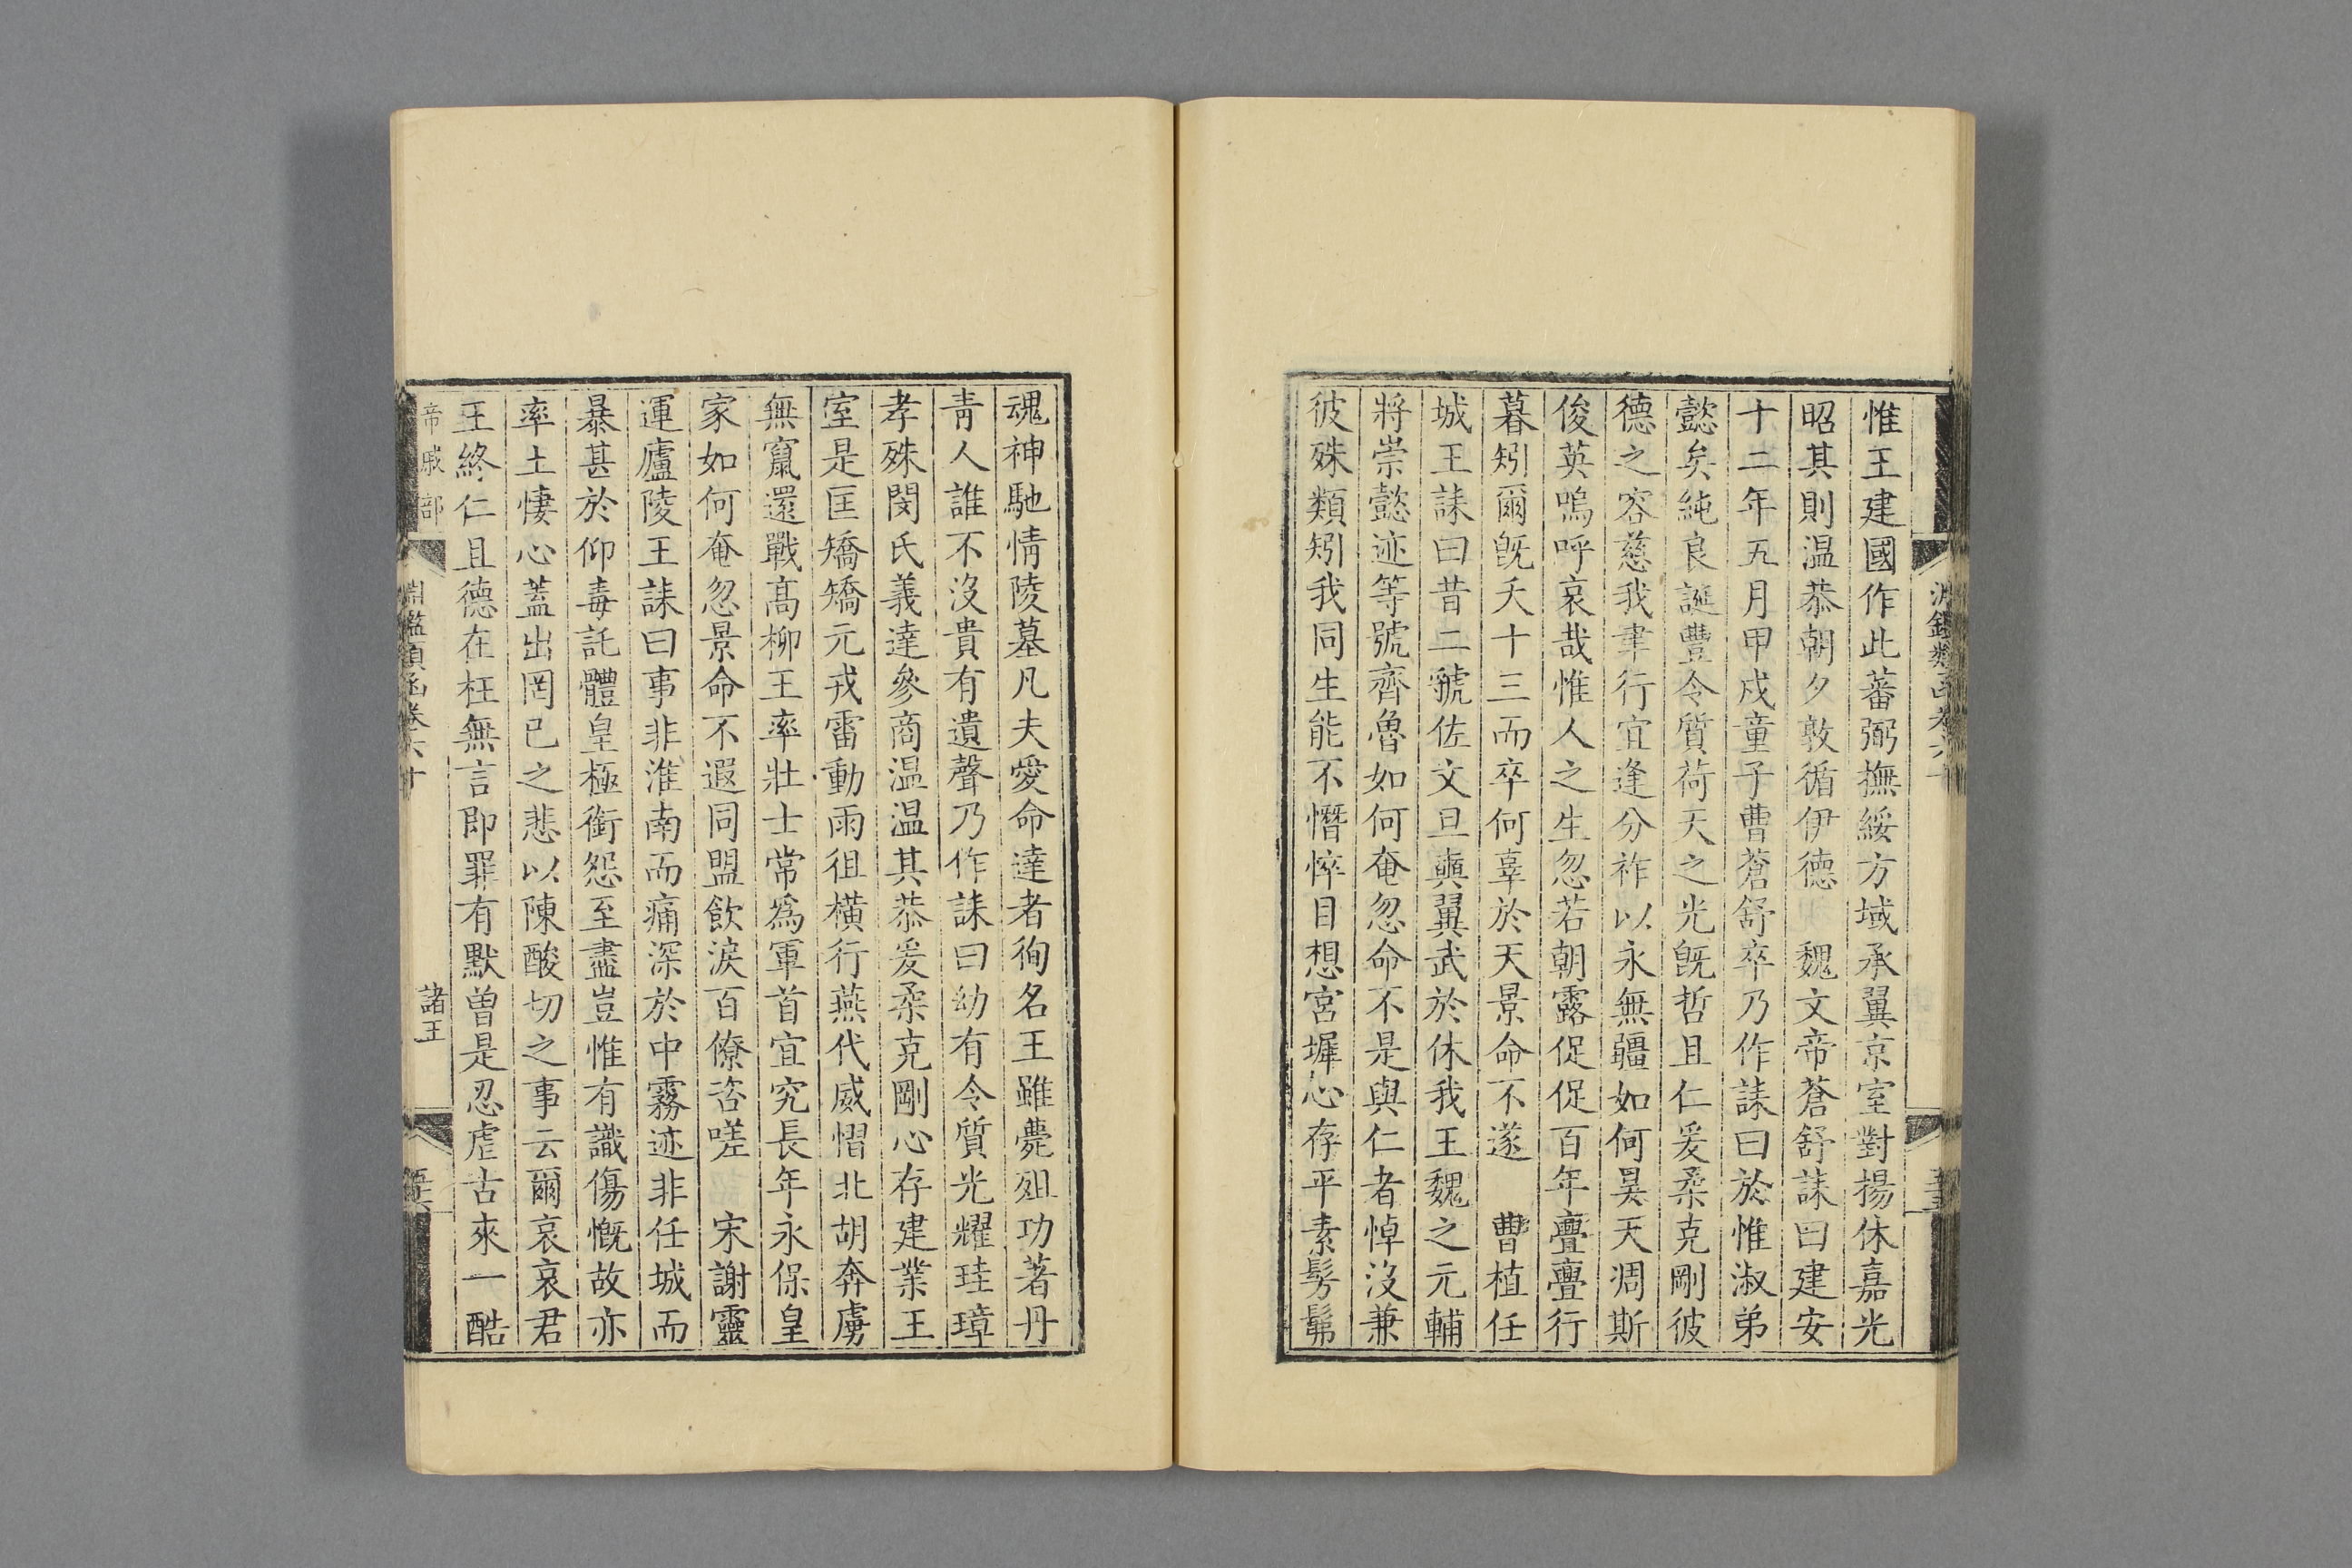 惟王建國作此蕃弼撫綏方域承翼京室對揚休嘉光
昭其則温恭朝夕敦循伊德　魏文帝蒼舒誄曰建安
十二年五月甲戍童子曹蒼舒卒乃作誄曰於惟淑弟
懿矣純良誕豐令質荷天之光旣哲且仁爰柔克剛彼
德之容慈我聿行宜逢分祚以永無疆如何昊天凋斯
俊英嗚呼哀哉惟人之生忽若朝露促促百年亹亹行
暮矧爾旣夭十三而卒何辜於天景命不遂　曹植任
城王誄曰昔二虢佐文旦奭翼武於休我王魏之元輔
將崇懿迹等號齊魯如何奄忽命不是與仁者悼沒兼
彼殊類矧我同生能不憯悴目想宮墀心存平素髣髴
魂神馳情陵墓凡夫愛命達者徇名王雖薨殂功著丹
靑人誰不沒貴有遺聲乃作誄曰幼有令質光耀珪璋
孝殊閔氏義達參商温温其恭爰柔克剛心存建業王
室是匡矯矯元戎雷動雨徂橫行燕代威慴北胡奔虜
無竄還戰高柳王率壯士常爲軍首宜究長年永保皇
家如何奄忽景命不遐同盟飲淚百僚咨嗟　宋謝靈
運廬陵王誄曰事非淮南而痛深於中霧迹非任城而
暴甚於仰毒託體皇極銜怨至盡豈惟有識傷慨故亦
率土悽心蓋出罔已之悲以陳酸切之事云爾哀哀君
王終仁且德在枉無言即罪有默曾是忍虐古來一酷
帝戚部
淵鑑類函卷六十
諸王